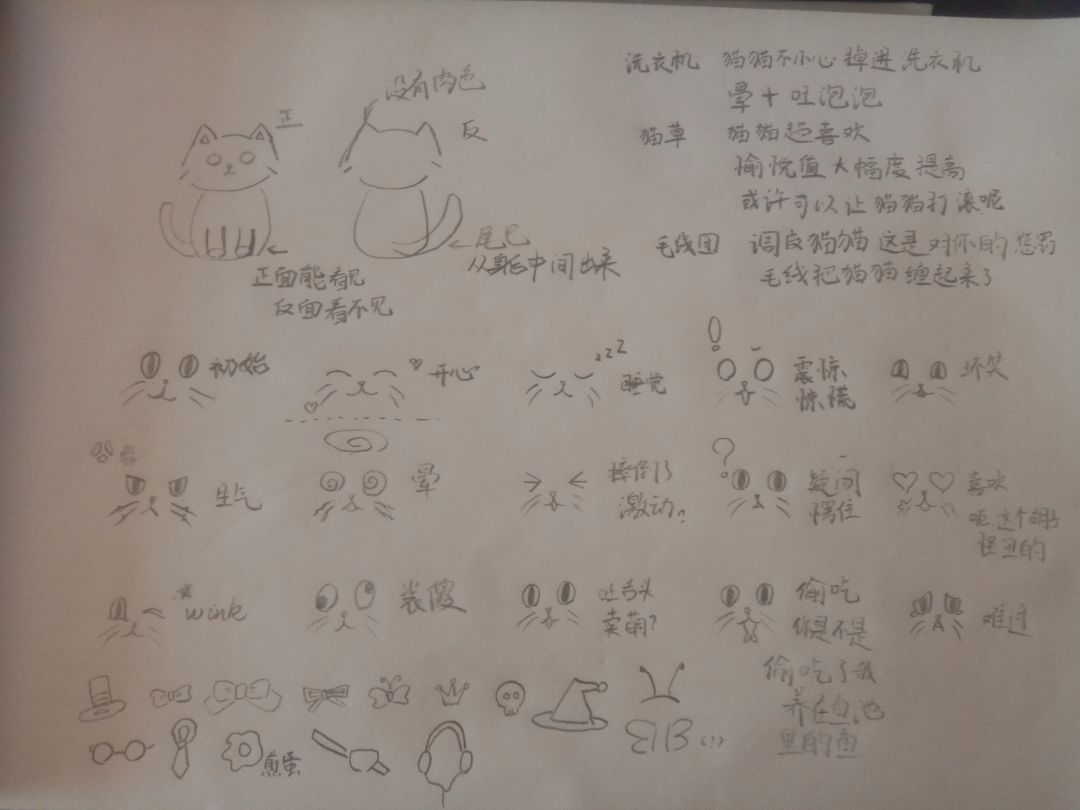 没有肉色
正
反
尾巴
从身后中间出来
正面能看见
反面看不见
洗衣机 猫猫不小心掉进洗衣机
晕+吐泡泡
猫草 猫猫超喜欢
愉悦值大幅度提高
或许可以让猫猫打滚呢
毛线团 调皮猫猫这是对你的惩罚
毛线把猫猫缠起来了
初始
开心
zzz
睡觉
!
震惊
惊慌
坏笑
生气
晕
摔倒了
激动?
?
疑问
愣住
喜欢
呃这个胡子
怪丑的
wink
装傻
吐舌头
卖萌?
偷吃
你是不是
偷吃了我
养在白池
里的鱼
难过
煎蛋